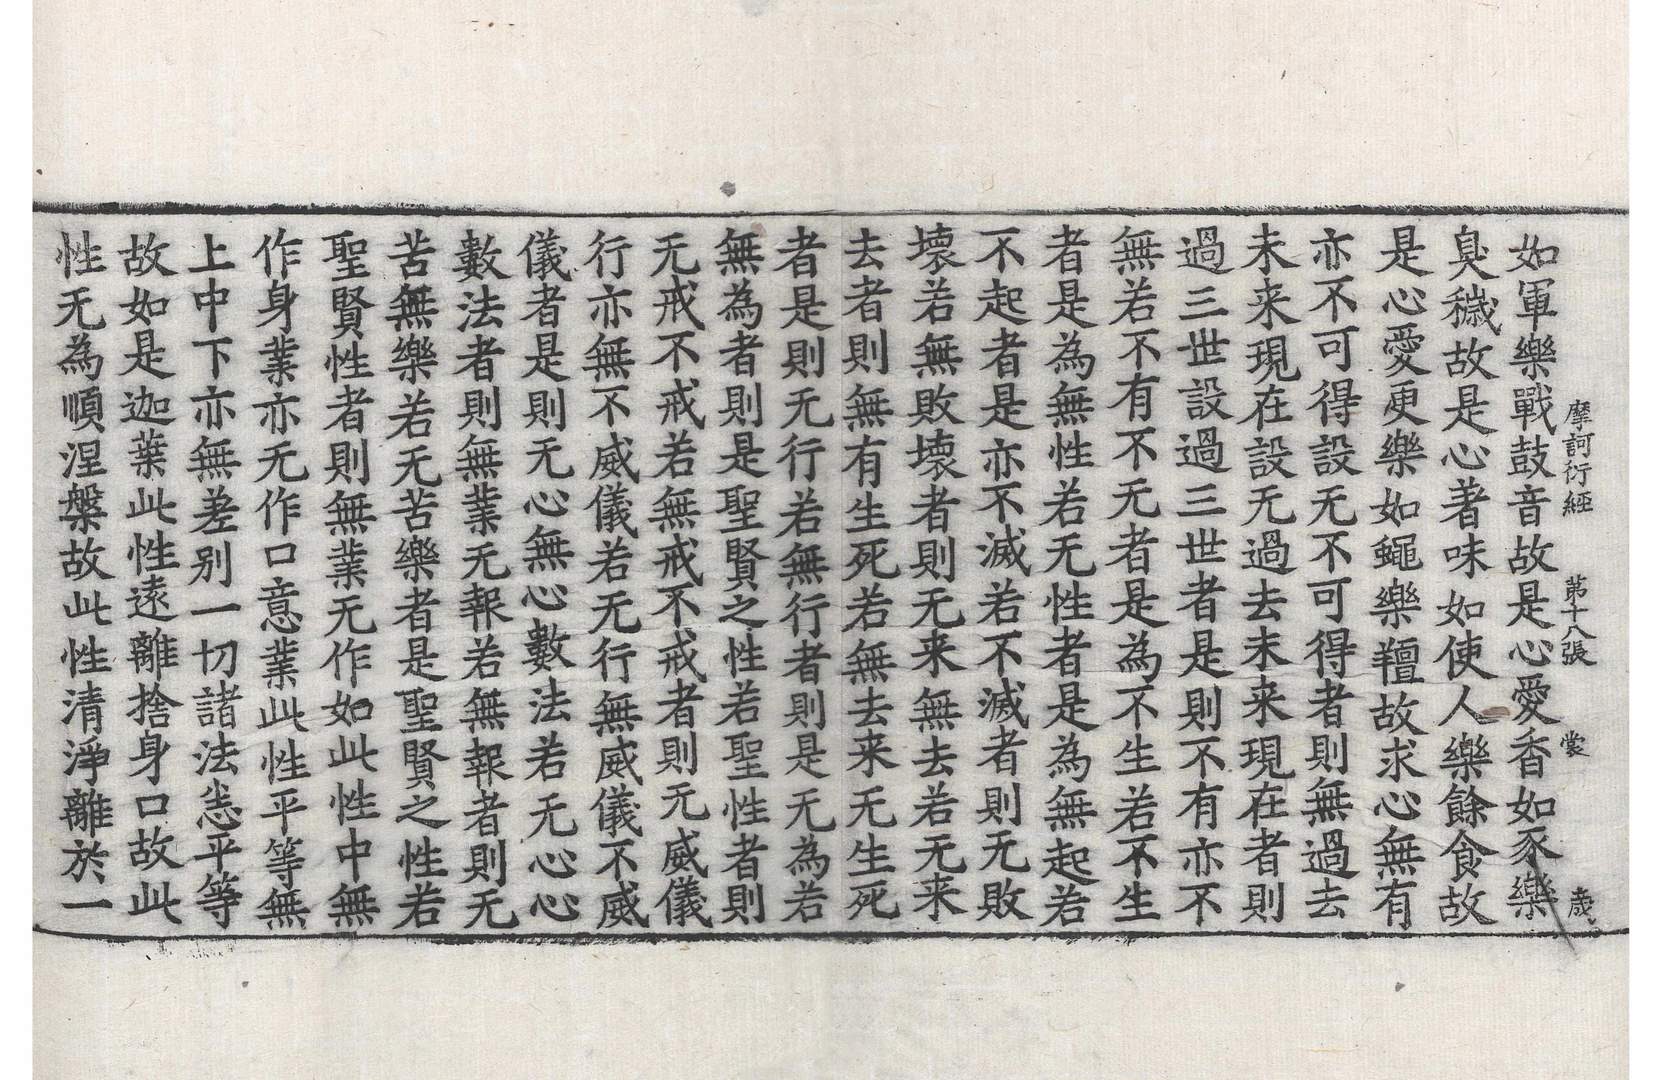 摩訶衍經 苐十八張 裳 歳
如軍樂戰鼓音故是心愛香如豕樂
臭穢故是心著味如使人樂餘食故
是心愛更樂如蠅樂羶故求心無有
亦不可得設无不可得者則無過去
未来現在設无過去未来現在者則
過三世設過三世者是則不有亦不
無若不有不无者是為不生若不生
者是為無性若无性者是為無起若
不起者是亦不滅若不滅者則无敗
壞若無敗壞者則无来無去若无来
去者則無有生死若無去来无生死
者是則无行若無行者則是无為若
無為者則是聖賢之性若聖性者則
无戒不戒若無戒不戒者則无威儀
行亦無不威儀若无行無威儀不威
儀者是則无心無心數法若无心心
數法者則無業无報若無報者則无
苦無樂若无苦樂者是聖賢之性若
聖賢性者則無業无作如此性中無
作身業亦无作口意業此性平等無
上中下亦無差别一切諸法悉平等
故如是迦葉此性逺離捨身口故此
性无為順涅槃故此性清淨離於一